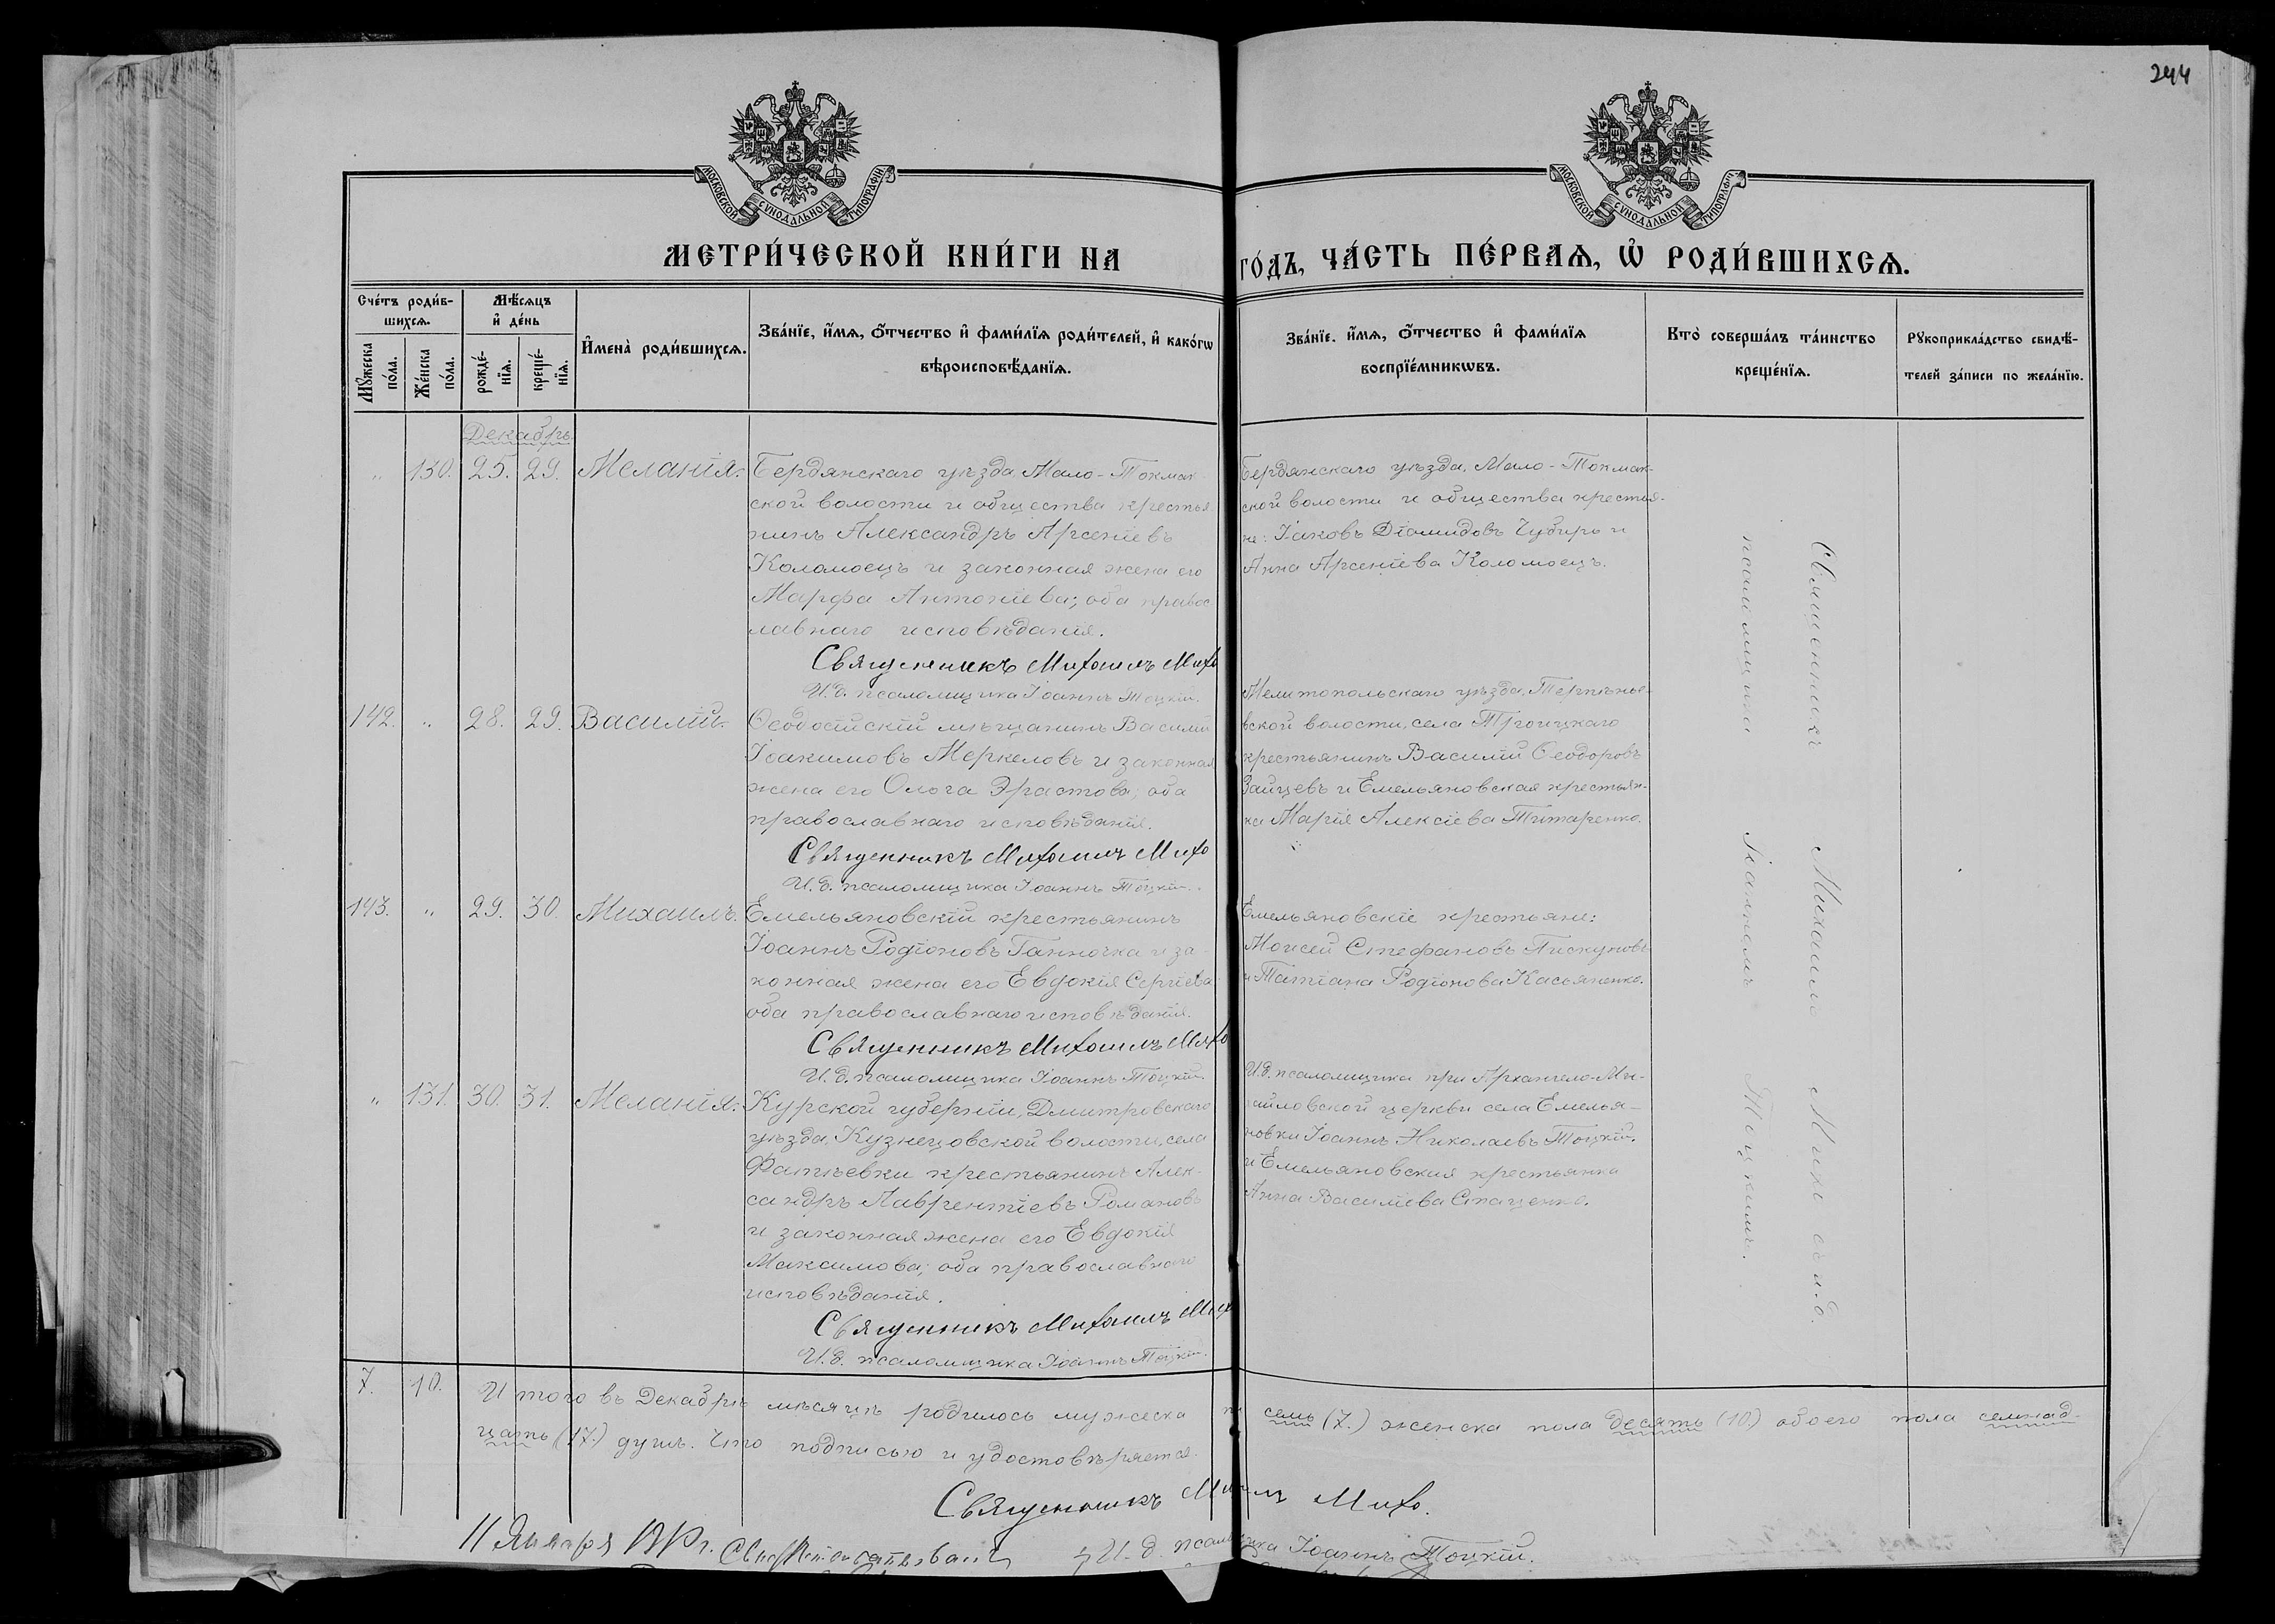 244
МОСКОВСКОЙ СѴНОДАЛЬНОЙ ТИПОГРАФІИ
МОСКОВСКОЙ СѴНОДАЛЬНОЙ ТИПОГРАФІИ
МЕТРИ́ЧЕСКОЙ КНИ́ГИ НА ГО́ДЪ, ЧА́СТЬ ПЕ́РВАѦ, Ѡ҆ РОДИ́ВШИХСѦ.
Сче́тъ роди́в-
шихсѧ.
Мꙋ́жеска по́ла.
Же́нска по́ла.
Мѣ́сѧцъ
и҆ де́нь
рожде́-
нїѧ.
креще́-
нїѧ.
И҆мена̀ роди́вшихсѧ.
Зва́нїе, и҆́мѧ, ѻ҆́тчество и҆ фами́лїѧ роди́телей, и҆ како́гѡ
вѣроисповѣ́данїѧ.
Зва́нїе, и҆́мѧ, ѻ҆́тчество и҆ фами́лїѧ
воспрїе́мникѡвъ.
Кто̀ соверша́лъ та́инство
креще́нїѧ.
Рꙋкоприкла́дство свидѣ́-
телей за́писи по жела́нїю.
Декабрь.
" 130. 25. 29. Меланія.
Бердянскаго уѣзда, Мало-Токмак-
ской волости и общества крестья
нинъ Александръ Арсеніевъ
Коломоецъ и законная жена его
Марфа Антоніева; оба правос
лавнаго исповѣданія.
Священникъ Михаилъ Михо
И.д. псаломщика Іоаннъ Тоцкій.
Бердянскаго уѣзда, Мало-Токмак-
ской волости и общества крестья-
не: Іаковъ Діомидовъ Чубирь и
Анна Арсеніева Коломоецъ.
142. " 28. 29. Василій.
Ѳеодосійскій мѣщанинъ Василій
Іоакимовъ Меркеловъ и законная
жена его Ольга Эрастова; оба
православнаго исповѣданія.
Священникъ Михаилъ Михо
И.д. псаломщика Іоаннъ Тоцкій.
Мелитопольскаго уѣзда, Терпѣнье-
вской волости, села Троицкаго
крестьянинъ Василій Ѳеодоровъ
Зайцевъ и Емельяновская крестьян-
ка Марія Алексіева Титаренко.
143. " 29. 30. Михаилъ.
Емельяновскій крестьянинъ
Іоаннъ Родіоновъ Ганночка и за-
конная жена его Евдокія Сергіева
оба православнаго исповѣданія.
Священникъ Михаилъ Михо
И.д. псаломщика Іоаннъ Тоцкій.
Емельяновскіе крестьяне:
Моисей Стефановъ Пискуновъ
и Татіана Родіонова Касьяненко.
" 131. 30. 31. Меланія.
Курской губерніи, Дмитровскаго
уѣзда, Кузнецовской волости, села
Фатѣевки крестьянинъ Алек-
сандръ Лаврентіевъ Романовъ
и законная жена его Евдокія
Максимова; оба православнаго
исповѣданія.
Священникъ Михаилъ Мих
И.д. псаломщика Іоаннъ Тоцкій.
И.д. псаломщика при Архангело-Ми-
хайловской церкви села Емелья-
новки Іоаннъ Николаевъ Тоцкій.
и Емельяновская крестьянка
Анна Василіева Стаценко.
Священникъ Михаилъ
псаломщикъ Іоанномъ Тоцкимъ.
7. 10. Итого въ Декабрѣ мѣсяцѣ родилось мужеска п семь (7.) женска пола десять (10.) обоего пола семнад-
цать (17.) душъ. Что подписью и удостовѣряется.
Священникъ Михо.
И.д. псаломщика Іоаннъ Тоцкій.
11 Января